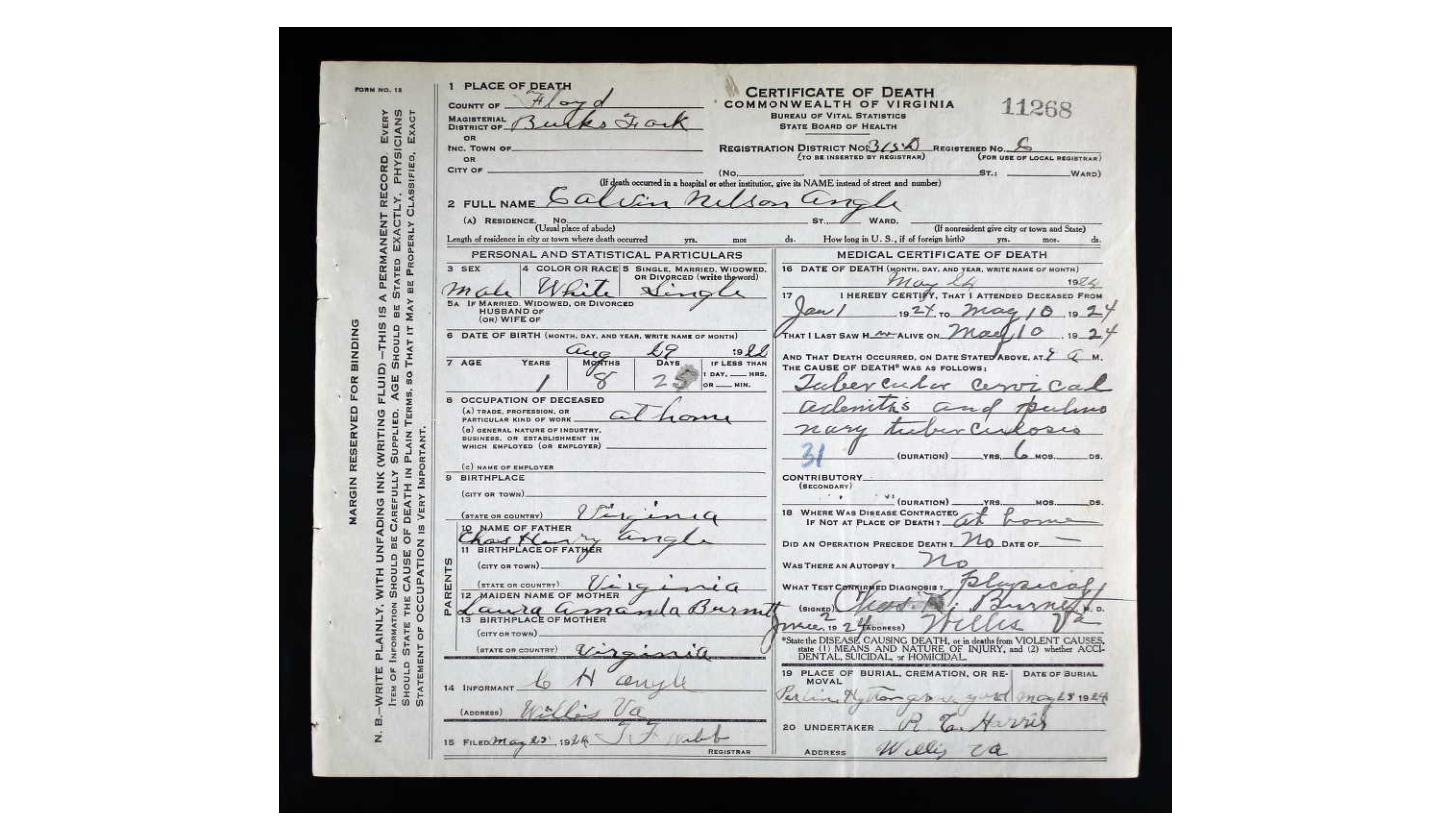 FORM NO. 15
MARGIN RESERVED FOR BINDING
N. B.—WRITE PLAINLY, WITH UNFADING INK (WRITING FLUID)—THIS IS A PERMANENT RECORD. EVERY
ITEM OF INFORMATION SHOULD BE CAREFULLY SUPPLIED. AGE SHOULD BE STATED EXACTLY. PHYSICIANS
SHOULD STATE THE CAUSE OF DEATH IN PLAIN TERMS, SO THAT IT MAY BE PROPERLY CLASSIFIED. EXACT
STATEMENT OF OCCUPATION IS VERY IMPORTANT.
1 PLACE OF DEATH
COUNTY OF Floyd
MAGISTERIAL
DISTRICT OF Burks Fork
OR
INC. TOWN OF
OR
CITY OF
CERTIFICATE OF DEATH
COMMONWEALTH OF VIRGINIA
BUREAU OF VITAL STATISTICS
STATE BOARD OF HEALTH
11268
REGISTRATION DISTRICT NO. 315D REGISTERED NO. 6
(TO BE INSERTED BY REGISTRAR) (FOR USE OF LOCAL REGISTRAR)
(No. ST.; WARD)
(If death occurred in a hospital or other institution, give its NAME instead of street and number)
2 FULL NAME Calvin Nelson Angle
(A) RESIDENCE. No. ST., WARD.
(Usual place of abode) (If nonresident give city or town and State)
Length of residence in city or town where death occurred yrs. mos ds. How long in U. S., if of foreign birth? yrs. mos. ds.
PERSONAL AND STATISTICAL PARTICULARS
3 SEX 4 COLOR OR RACE 5 SINGLE, MARRIED, WIDOWED,
OR DIVORCED (write the word)
Male White Single
5A IF MARRIED, WIDOWED, OR DIVORCED
HUSBAND OF
(OR) WIFE OF
6 DATE OF BIRTH (MONTH, DAY, AND YEAR, WRITE NAME OF MONTH)
Aug 29 1922
7 AGE YEARS MONTHS DAYS IF LESS THAN
1 DAY, HRS.
OR MIN.
1 8 25
8 OCCUPATION OF DECEASED
(A) TRADE, PROFESSION, OR
PARTICULAR KIND OF WORK at home
(B) GENERAL NATURE OF INDUSTRY,
BUSINESS, OR ESTABLISHMENT IN
WHICH EMPLOYED (OR EMPLOYER)
(C) NAME OF EMPLOYER
9 BIRTHPLACE
(CITY OR TOWN)
(STATE OR COUNTRY) Virginia
PARENTS
10 NAME OF FATHER
Chas Henry Angle
11 BIRTHPLACE OF FATHER
(CITY OR TOWN)
(STATE OR COUNTRY) Virginia
12 MAIDEN NAME OF MOTHER
Laura Amanda Burnett
13 BIRTHPLACE OF MOTHER
(CITY OR TOWN)
(STATE OR COUNTRY) Virginia
14 INFORMANT C H Angle
(ADDRESS) Willis Va
15 FILED May 25 1924 T F Webb
REGISTRAR
MEDICAL CERTIFICATE OF DEATH
16 DATE OF DEATH (MONTH, DAY, AND YEAR, WRITE NAME OF MONTH)
May 24 1924
17 I HEREBY CERTIFY, THAT I ATTENDED DECEASED FROM
Jan 1 1924, TO May 10, 1924
THAT I LAST SAW H im ALIVE ON May 10, 1924
AND THAT DEATH OCCURRED, ON DATE STATED ABOVE, AT 9 A M.
THE CAUSE OF DEATH* WAS AS FOLLOWS:
Tubercular cervical
adenitis and pulmo
nary tuberculosis
31 (DURATION) YRS. 6 MOS. DS.
CONTRIBUTORY
(SECONDARY)
(DURATION) YRS. MOS. DS.
18 WHERE WAS DISEASE CONTRACTED
IF NOT AT PLACE OF DEATH? at home
DID AN OPERATION PRECEDE DEATH? No DATE OF —
WAS THERE AN AUTOPSY? No
WHAT TEST CONFIRMED DIAGNOSIS? Physical
(SIGNED) Burnett M. D.
June 2, 1924 (ADDRESS) Willis Va
*State the DISEASE CAUSING DEATH, or in deaths from VIOLENT CAUSES,
state (1) MEANS AND NATURE OF INJURY, and (2) whether ACCI-
DENTAL, SUICIDAL, or HOMICIDAL.
19 PLACE OF BURIAL, CREMATION, OR RE-
MOVAL DATE OF BURIAL
Hylton grave yard May 25 1924
20 UNDERTAKER R. T. Harris
ADDRESS Willis Va